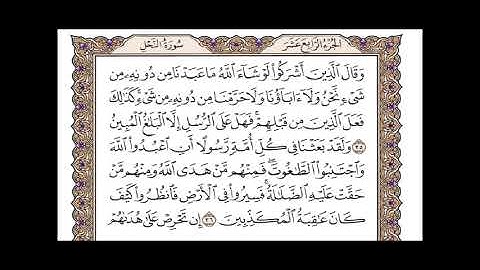 الجزء الرابع عشر
سورة النحل
وَقَالَ ٱلَّذِينَ أَشْرَكُوا۟ لَوْ شَآءَ ٱللَّهُ مَا عَبَدْنَا مِن دُونِهِۦ مِن
شَىْءٍ نَّحْنُ وَلَآ ءَابَآؤُنَا وَلَا حَرَّمْنَا مِن دُونِهِۦ مِن شَىْءٍ كَذَٰلِكَ
فَعَلَ ٱلَّذِينَ مِن قَبْلِهِمْ فَهَلْ عَلَى ٱلرُّسُلِ إِلَّا ٱلْبَلَٰغُ ٱلْمُبِينُ
٣٥ وَلَقَدْ بَعَثْنَا فِى كُلِّ أُمَّةٍ رَّسُولًا أَنِ ٱعْبُدُوا۟ ٱللَّهَ
وَٱجْتَنِبُوا۟ ٱلطَّٰغُوتَ فَمِنْهُم مَّنْ هَدَى ٱللَّهُ وَمِنْهُم مَّنْ
حَقَّتْ عَلَيْهِ ٱلضَّلَٰلَةُ فَسِيرُوا۟ فِى ٱلْأَرْضِ فَٱنظُرُوا۟ كَيْفَ
كَانَ عَٰقِبَةُ ٱلْمُكَذِّبِينَ ٣٦ إِن تَحْرِصْ عَلَىٰ هُدَىٰهُمْ